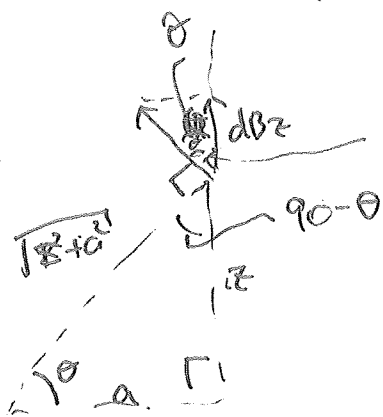 θ
dBz
90-θ
√z²+a²
z
θ
a